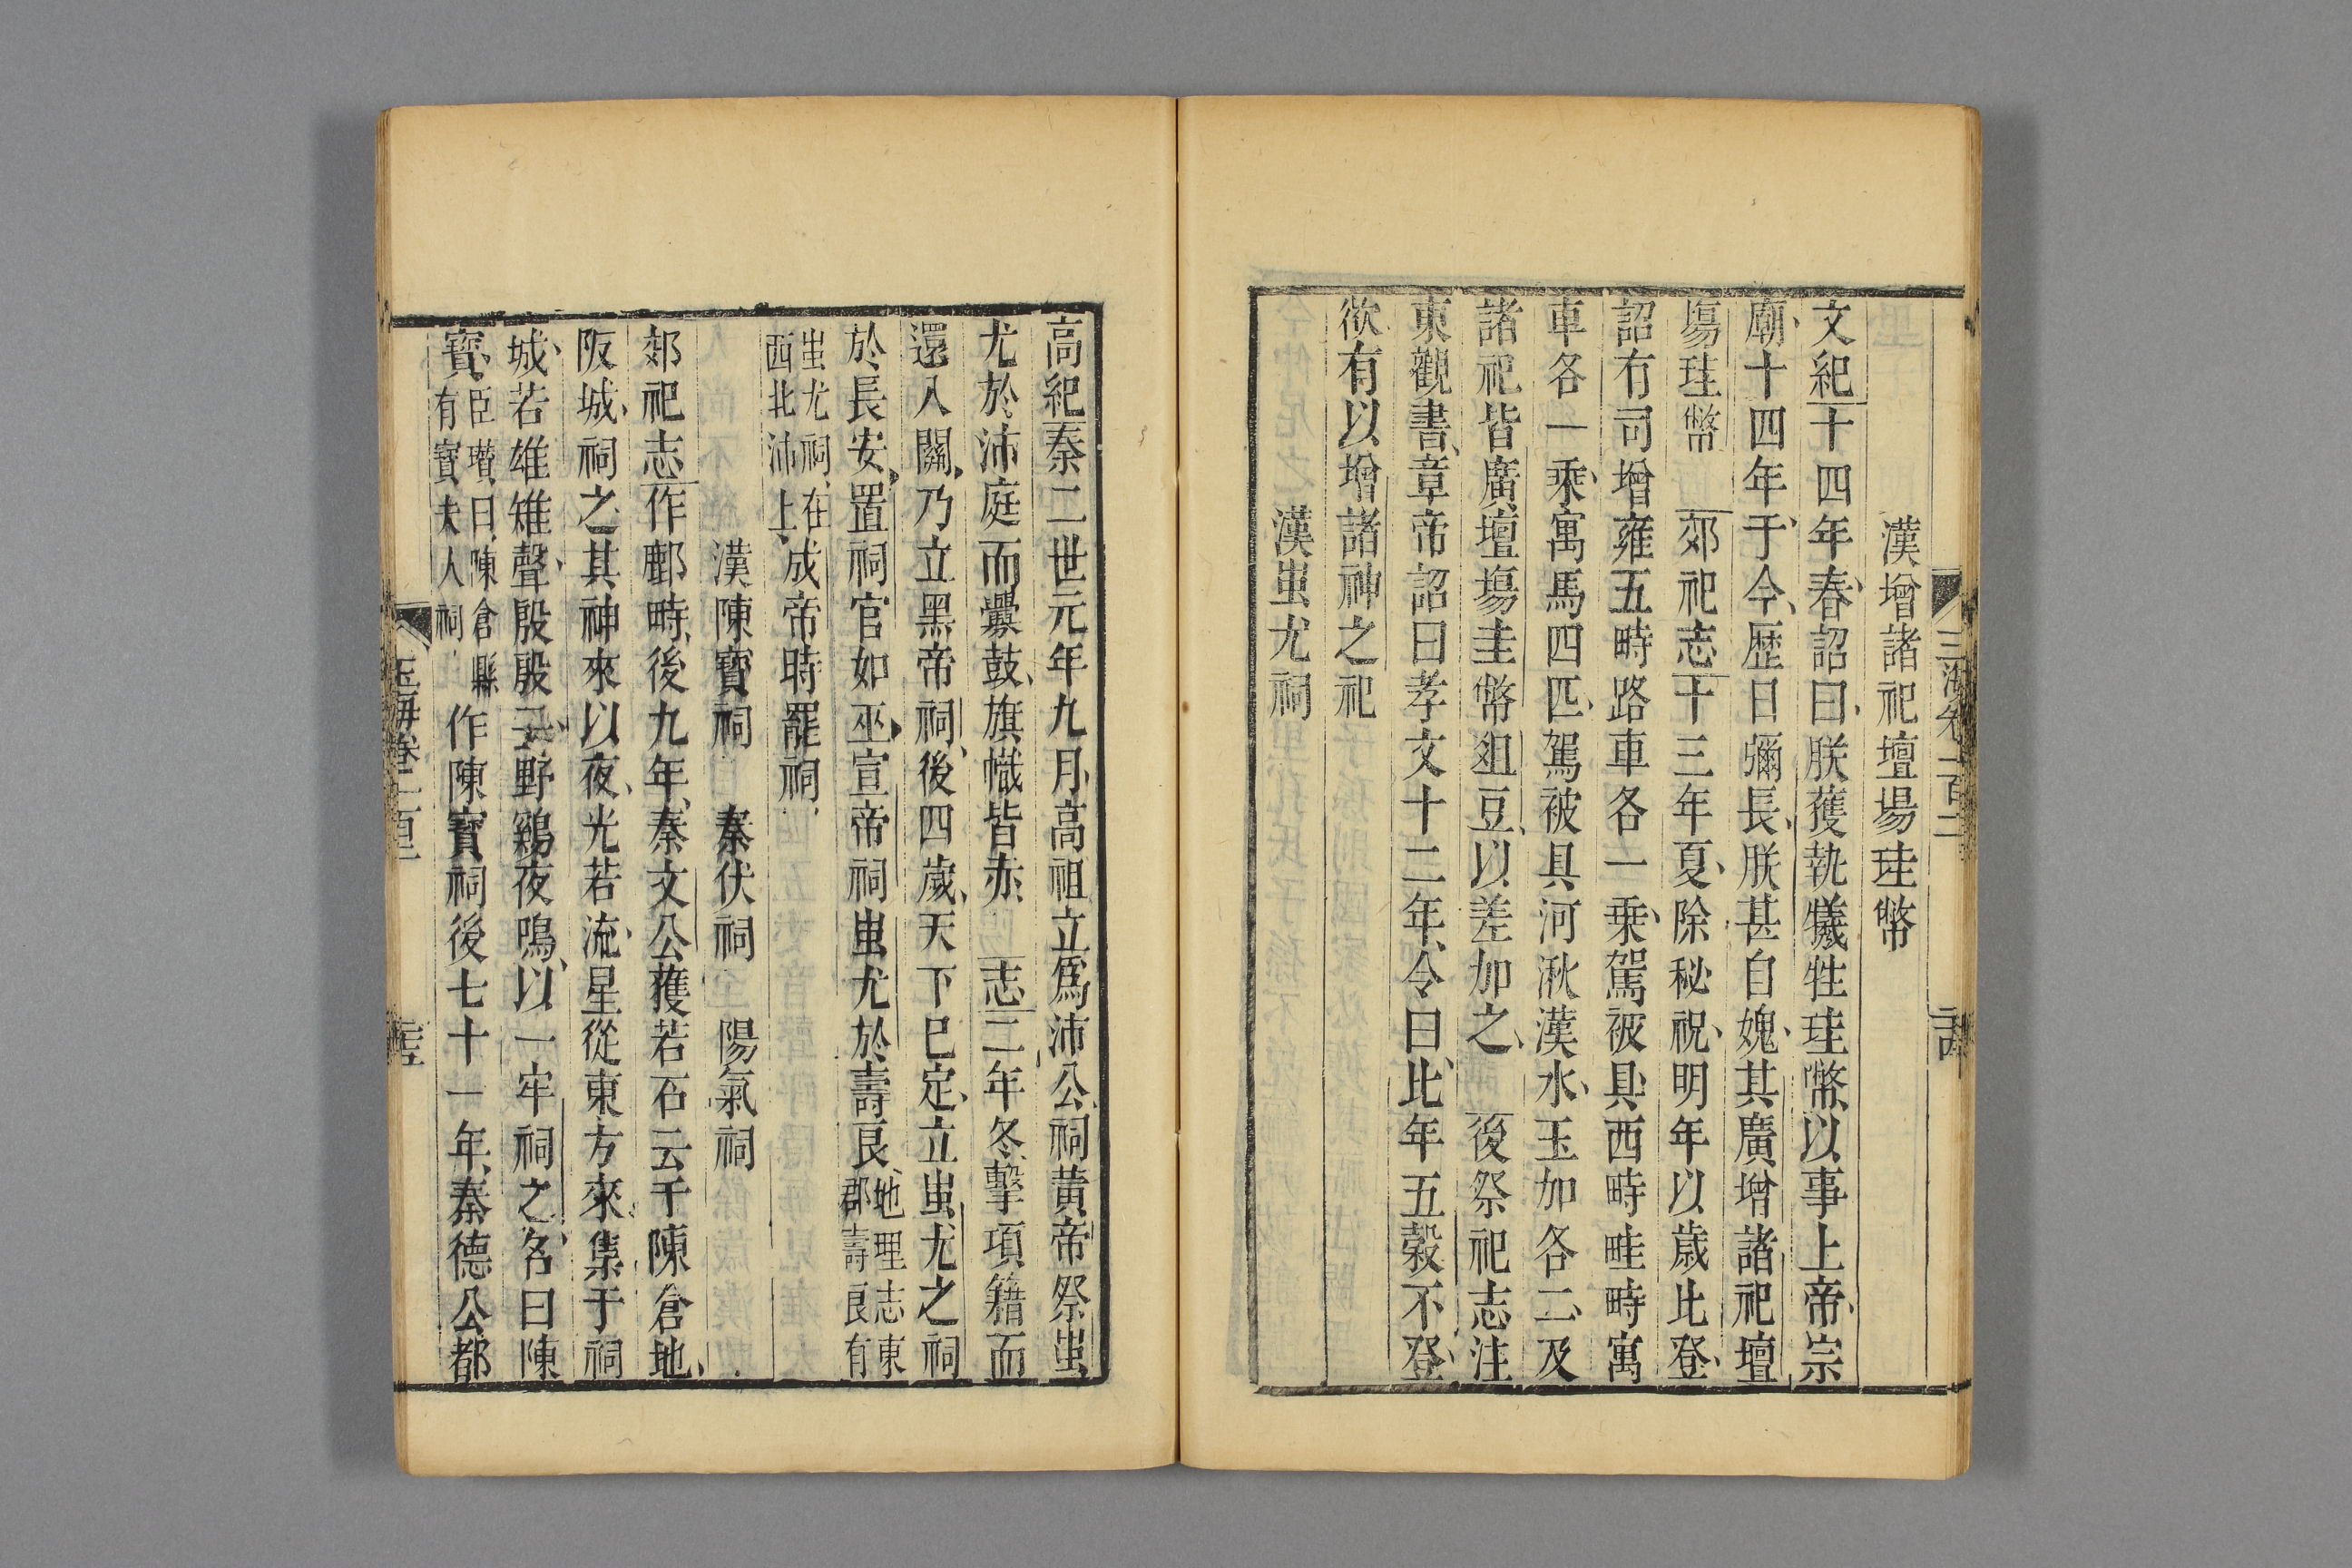 漢增諸祀壇場珪幣
文紀十四年春詔曰朕獲執犧牲珪幣以事上帝宗
廟十四年于今歷日彌長朕甚自媿其廣增諸祀壇
場珪幣　郊祀志十三年夏除秘祝明年以歲比登
詔有司增雍五畤路車各一乘駕被具西畤畦畤寓
車各一乘寓馬四匹駕被具河湫漢水玉加各二及
諸祀皆廣壇場圭幣爼豆以差加之　後祭祀志注
東觀書章帝詔曰孝文十二年令曰比年五穀不登
欲有以增諸神之祀
漢蚩尤祠
高紀秦二世元年九月高祖立爲沛公祠黃帝祭蚩
尤於沛庭而釁鼓旗幟皆赤　志二年冬擊項籍而
還入關乃立黑帝祠後四歲天下已定立蚩尤之祠
於長安置祠官如巫宣帝祠蚩尤於壽良地理志東郡壽良有
蚩尤祠在西北沛上成帝時罷祠
漢陳寶祠　秦伏祠　陽氣祠
郊祀志作鄜畤後九年秦文公獲若石云于陳倉地
阪城祠之其神來以夜光若流星從東方來集于祠
城若雄雉聲殷殷云野鷄夜鳴以一牢祠之名曰陳
寶臣瓚曰陳倉縣有寶夫人祠作陳寶祠後七十一年秦德公都
玉海卷一百二